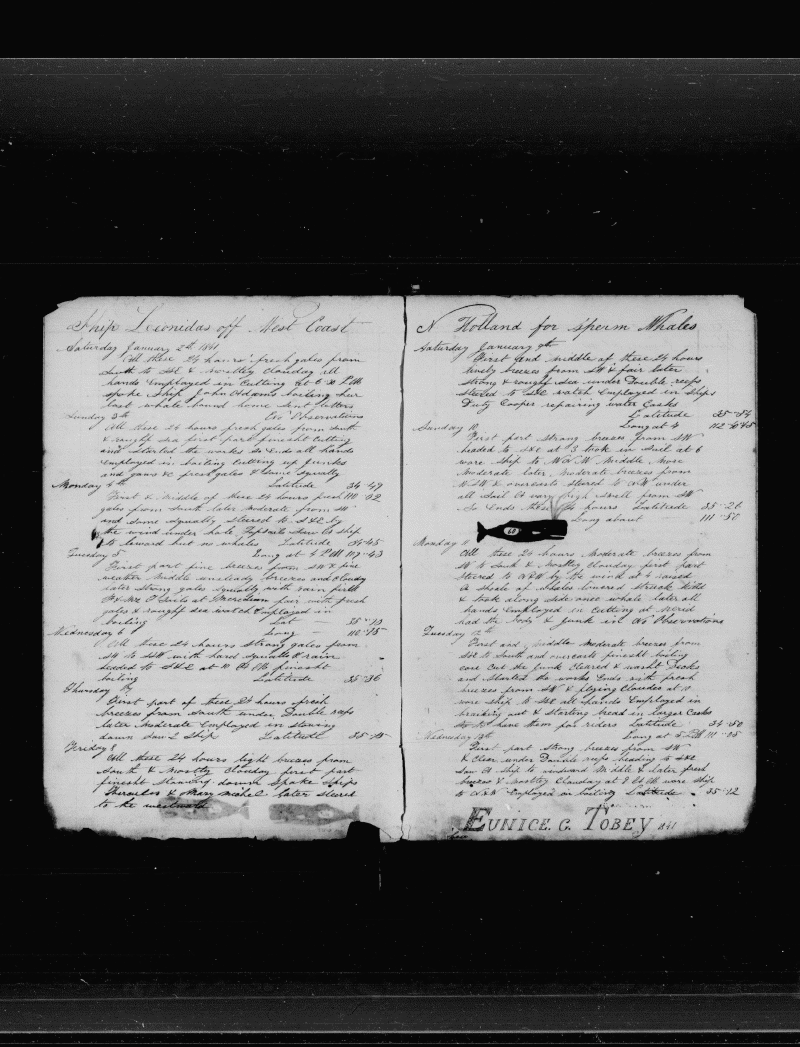 Ship Leonidas off West Coast
Saturday January 2th 1841
All these 24 hours fresh gales from
South to SSE & mostley Clouday all
hands Employed in Cutting at 6 PM
spoke Ship John Addams boiling her
last whale bound home Sent letters
Sunday 3th No Observations
All these 24 hours fresh gales from South
& rought sea first part finesht Cutting
and Started the works So Ends all hands
Employed in boiling Cutting up Junks
and gams &c fresh gales & Some Squally
Latitude 34-47
Monday 4th
First & Middle of these 24 hours fresh 110-02
gales from South later Moderate from SW
and some Squally steared to SSE by
the wind under hole Topsails Saw a ship
to leward but no whales Latitude 34-45
Tuesday 5 Long at 4 PM 109-43
First part fine breezes from SW & fine
weather Middle unsteady breezes and Cloudy
later Strong gales Squally with rain
fair with fresh
gales & rought sea watch Employed in
boiling Lat 35-10
Wednesday 6 Long 110-15
All these 24 hours Strong gales from
SW to SSW with hard Squalls & rain
headed to SSE at 10 PM finesht
boiling Latitude 35-36
Thursday 7
First part of these 24 hours fresh
breezes from South under Double reefs
later Moderate Employed in stowing
down Saw 2 Ship Latitude 35-15
Friday 8
All these 24 hours light breezes from
South & Mostley Clouday first part
finesht Stowing down Spoke Ships
& Mary Michel later steared
to the westward
N Holland for Sperm Whales
Saturday January 9th
First and middle of these 24 hours
lively breezes from SW & fair later
strong & rought sea under Double reefs
steared to SSE watch Employed in Ships
Duty Cooper repairing water Casks
Latitude 35-54
Sunday 10 Long at 4 112-45
First part strong breezes from SW
headed to SSE at 3 took in sail at 6
wore Ship to W N W Middle More
Moderate later Moderate breezes from
WSW & overcasts steared to NW under
all Sail A very high Swell from SW
So Ends these 24 hours Latitude 35-26
60
Long about 111-50
Monday 11
All these 24 hours Moderate breezes from
SW to South & Mostley Clouday first part
steared to WNW by the wind at 4 raised
A Shole of whales lowered Struck killd
& took along side one whale later all
hands Employed in Cutting at
had the body & junk in No Observations
Tuesday 12th
First and middle Moderate breezes from
SSE to South and overcasts finesht
Cut the junk Cleared & washt Decks
and Started the works Ends with fresh
breezes from SW & flying Cloudes at
wore Ship to SSE all hands Employed in
breaking out & Starting bread in larger Casks
Latitude 34-50
Wednesday 13th Long at 5 PM 111-25
First part Strong breezes from SW
& Clear under Double reefs heading to SSE
Saw A Ship to windward Middle & later fresh
breezes & Mostley Clouday at 8 AM wore Ship
to WNW Employed in boiling Latitude 35-12
EUNICE. C. TOBEY 1841